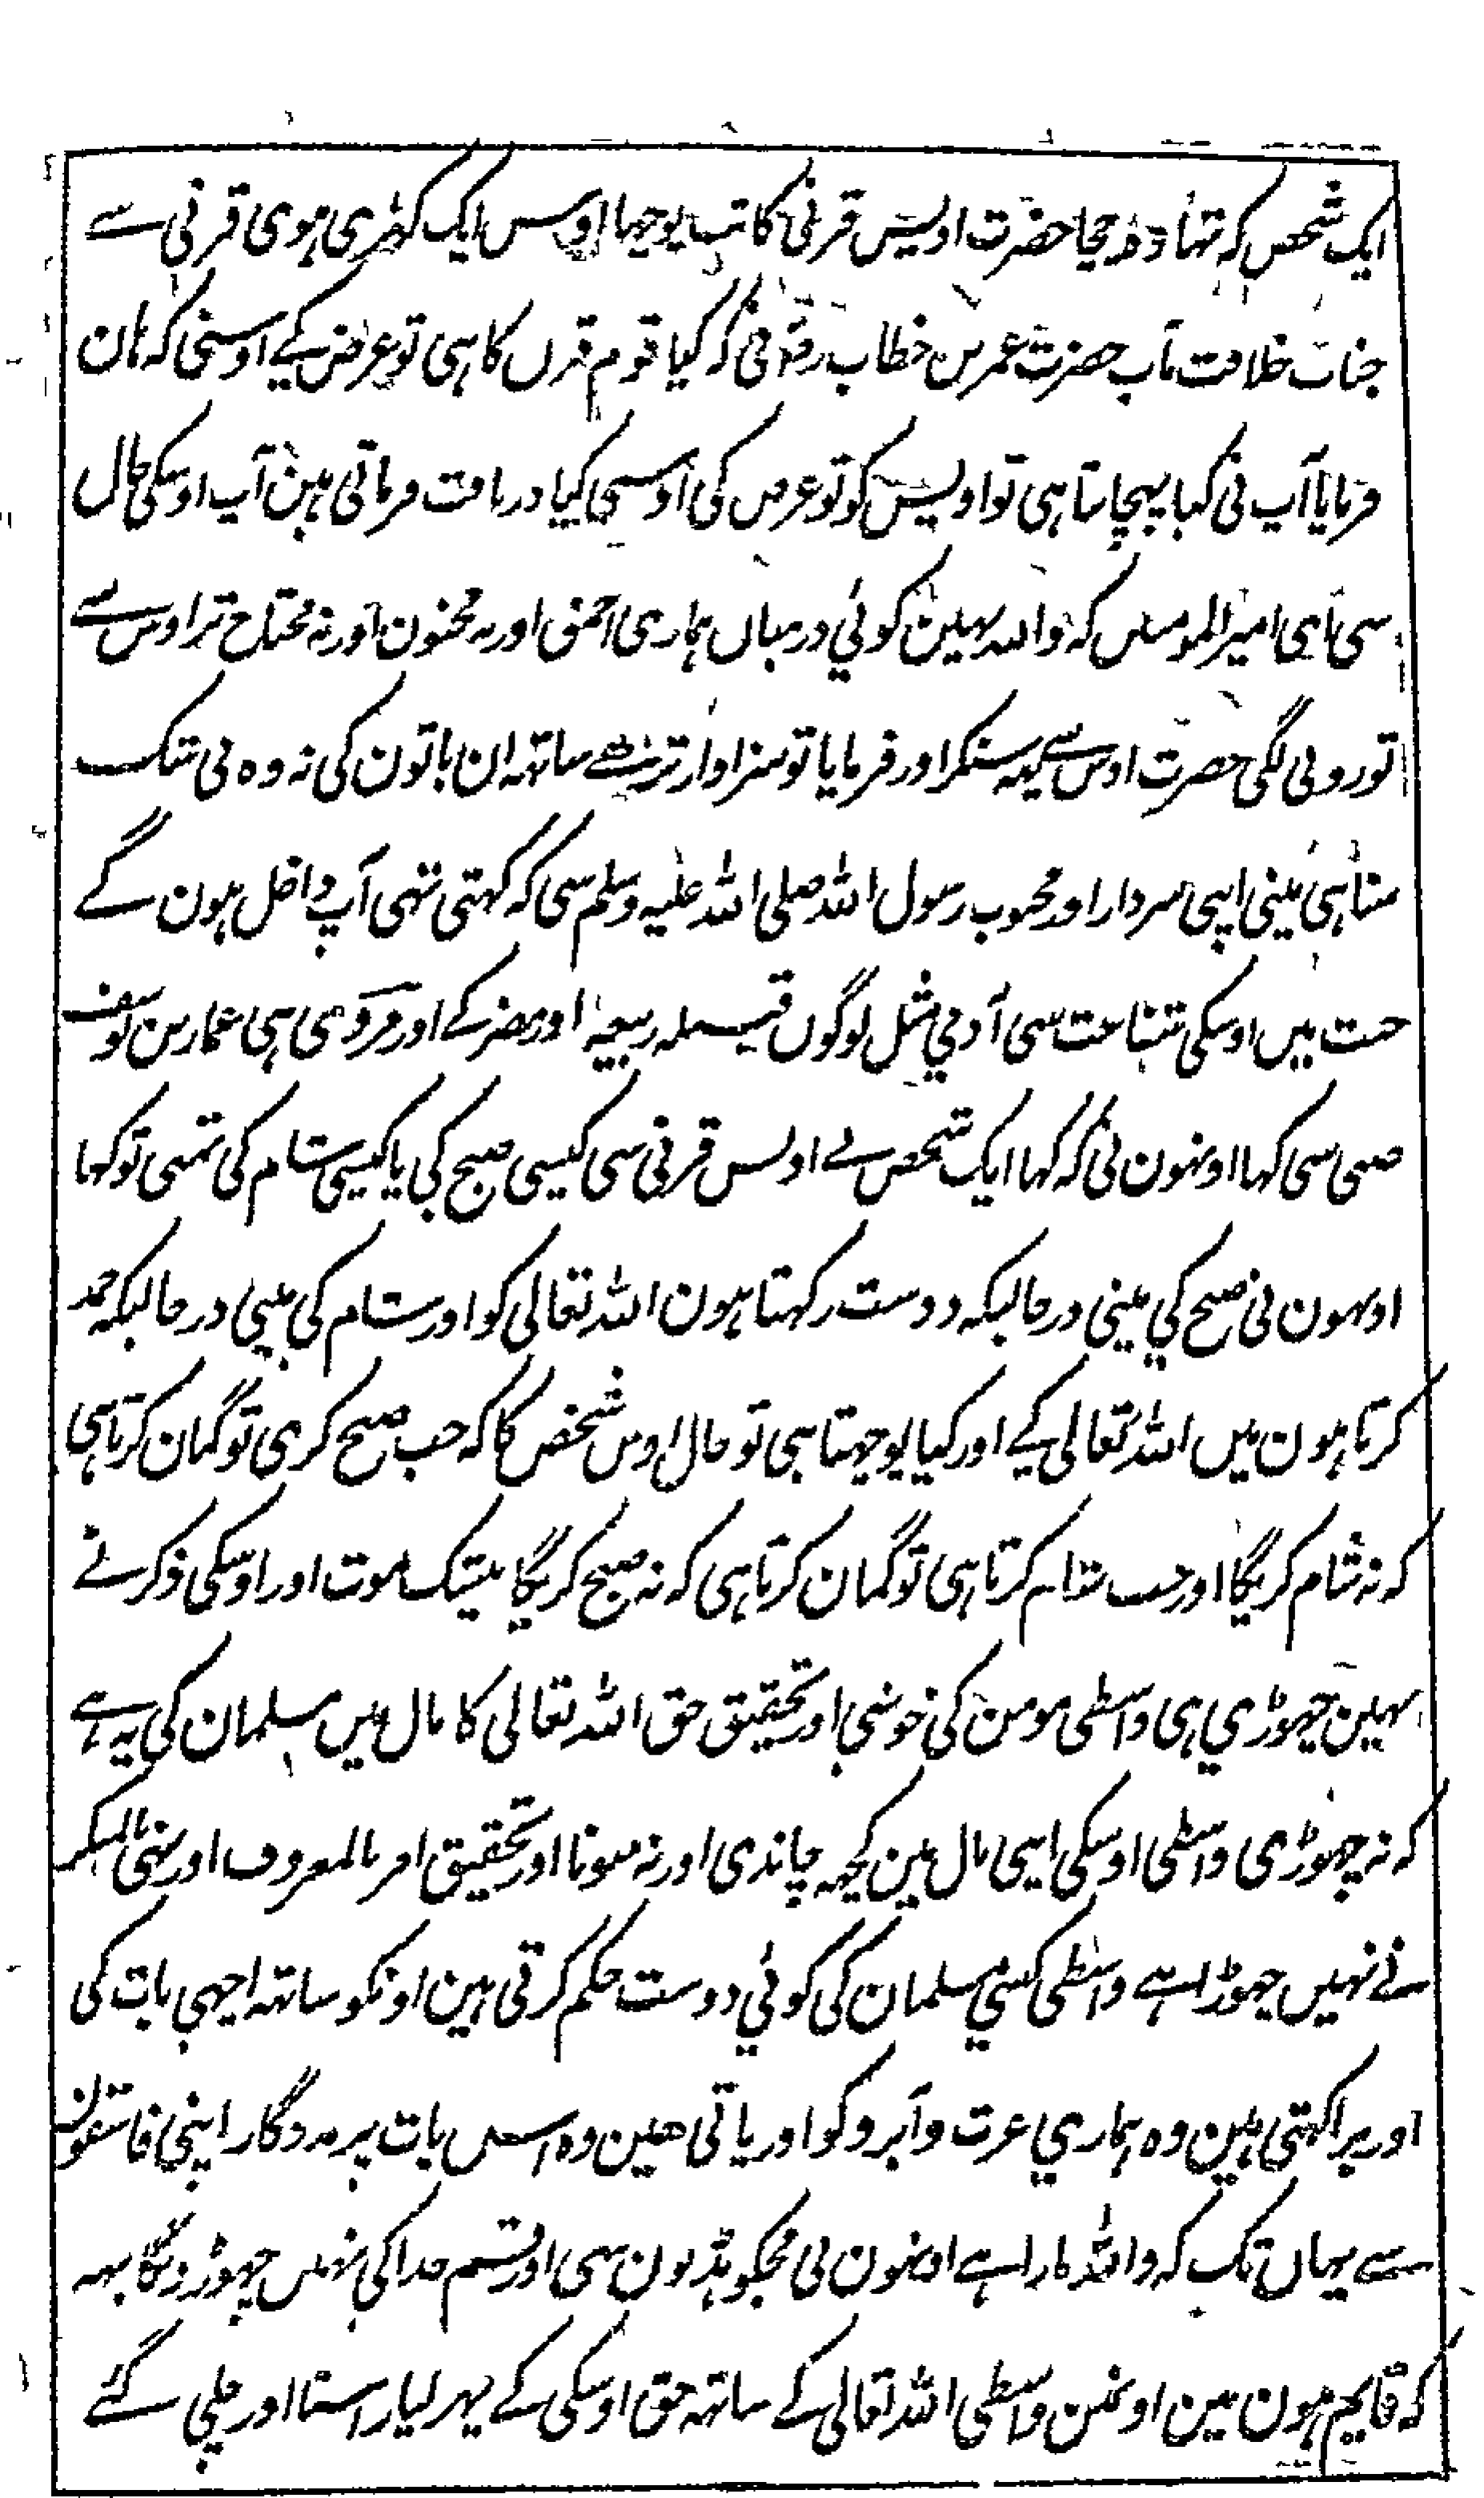 ایک شخص کہ تہا چچا حضرت اویس قرنی کا تب پوچہا اوس ایک کھڑی ہوی قرنی سے
جناب خلافت مآب حضرت عمر بن خطاب رض نی کہ کیا قوم قرن کا ہی تو عرض کیے اوسنی کہ ہان
فرمایا آپ نی کیا پہچانتا ہی تو اویس کو تو عرض کی اوسنی کیا دریافت فرماتی ہین آپ اوسکی حال
سی ای امیر المومنین کہ واللہ نہین کوئی درمیان ہماری احمق اور نہ مجنون اور نہ محتاج تر اوس سے
تو رونی لگی حضرت اوس سے یہہ سنکر اور فرمایا تو سزاوار تر ہے ساتہہ ان باتون کی نہ وہ بی شک
سنا ہی مینی اپنی سردار اور محبوب رسول اللہ صلی اللہ علیہ وسلم سی کہ کہتی تہی آپ داخل ہون گے
جنت میں اوسکی شفاعت سی آدمی مثل لوگوں قبیلہ ربیعہ اور مضر کے اور مروی ہی عمار بن یوسف
ضبی سی کہا اونہون نی کہ کہا ایک شخص نے اویس قرنی سی کیسی صبح کی یا کیسی شام کی تمنی تو کہا
اونہون نی صبح کی مینی درحالیکہ دوست رکہتا ہون اللہ تعالی کو اور شام کی مینی درحالیکہ حمد
کرتا ہون میں اللہ تعالی کے اور کیا پوچہتا ہی تو حال اوس شخص کا کہ جب صبح کری تو گمان کرتا ہی
کہ نہ شام کریگا اور جب شام کرتا ہی تو گمان کرتا ہی کہ نہ صبح کریگا بیشک موت اور اوسکی ذکر نے
نہین چہوڑی ہی واسطی مومن کی خوشی اور تحقیق حق اللہ تعالی کا مال میں مسلمان کی یہ ہے
کہ نہ چہوڑی واسطی اوسکی اپنی مال مین کچہہ چاندی اور نہ سونا اور تحقیق امر بالمعروف اور نہی المنکر
نے نہیں چہوڑا ہے واسطی کسی مسلمان کی کوئی دوست حکم کرتی ہین اونکو ساتہہ اچہی بات کی
اور برا کہتی ہین وہ ہماری عزت و آبرو کو اور پاتی ہین وہ اسمیں بات پر مددگار اپنی فاسقون
سے یہاں تک کہ واللہ مارا ہے اونہون نی مجکو ہڈیون سی اور قسم خدا کی نہیں چہوڑونگا یہہ
کہ قایم ہون مین اونمین واسطی اللہ تعالی کے ساتہہ حق اوسکی کے پہر لیا راستا اور چلی گئے